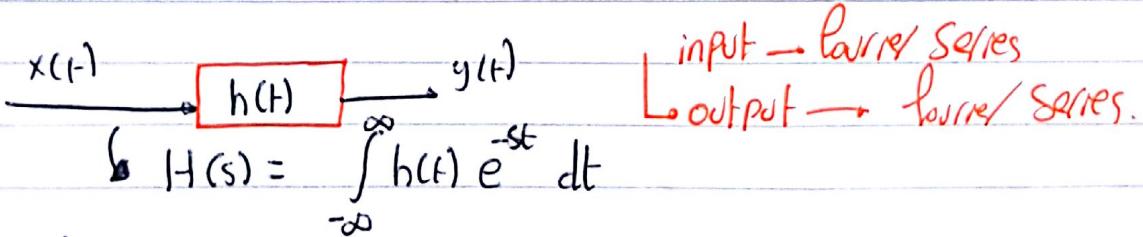 x(t) h(t) y(t) input → fourier series
↳ output → fourier series.
↳ H(s) = ∫_{-∞}^{∞} h(t) e^{-st} dt